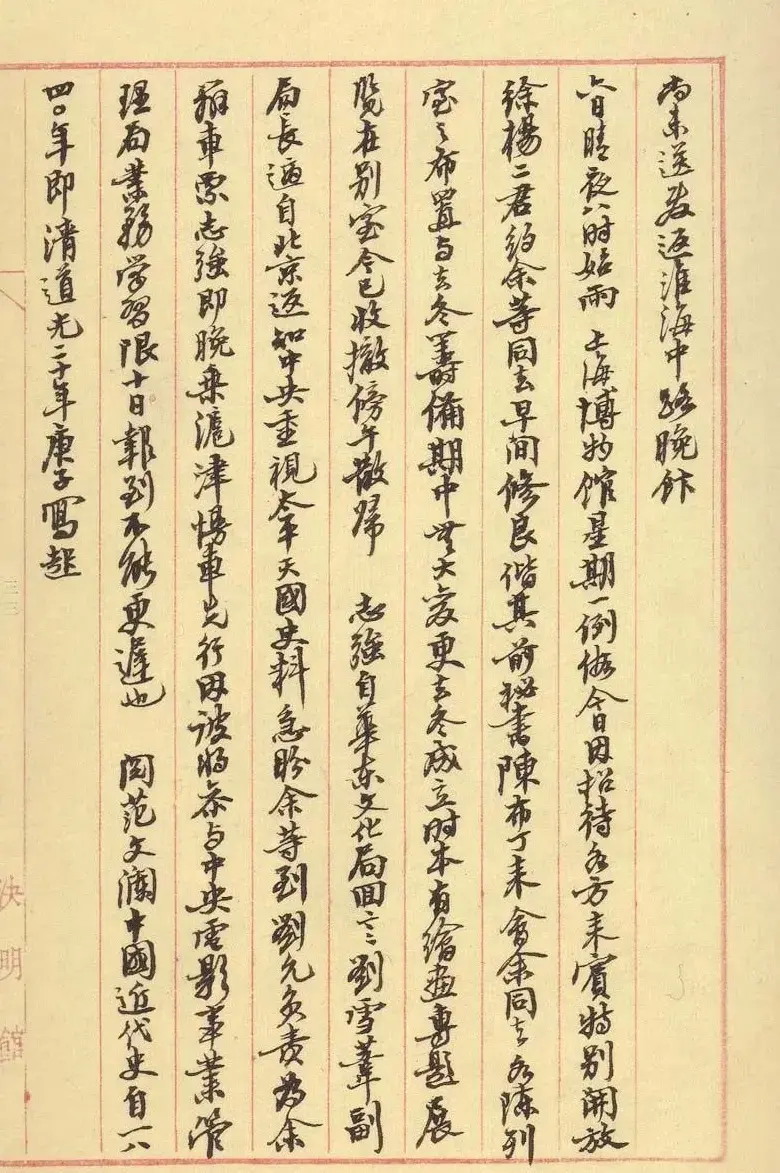 尚未送友返淮海中路晚飰
六日晴夜八时始雨　上海博物馆星期一例休今日因招待各方来賓特别開放
徐楊二君約余等同去早间修良偕其前秘書陳布丁来會余同去各陳列
室之布置与去冬籌備期中無大变更去冬成立时本有繪畫專題展
覽在别室今已收撤傍午散归　志強自華东文化局回言劉雪葦副
局長適自北京返知中央重視太平天國史料急盼余等到劉允负责為余
辦車票志強即晚乘滬津慢車先行因彼將参与中央電影事業管
理局業務学習限十日報到不能更遲也　閲范文瀾中國近代史自一八
四〇年即清道光二十年庚子寫起
決明館
三三